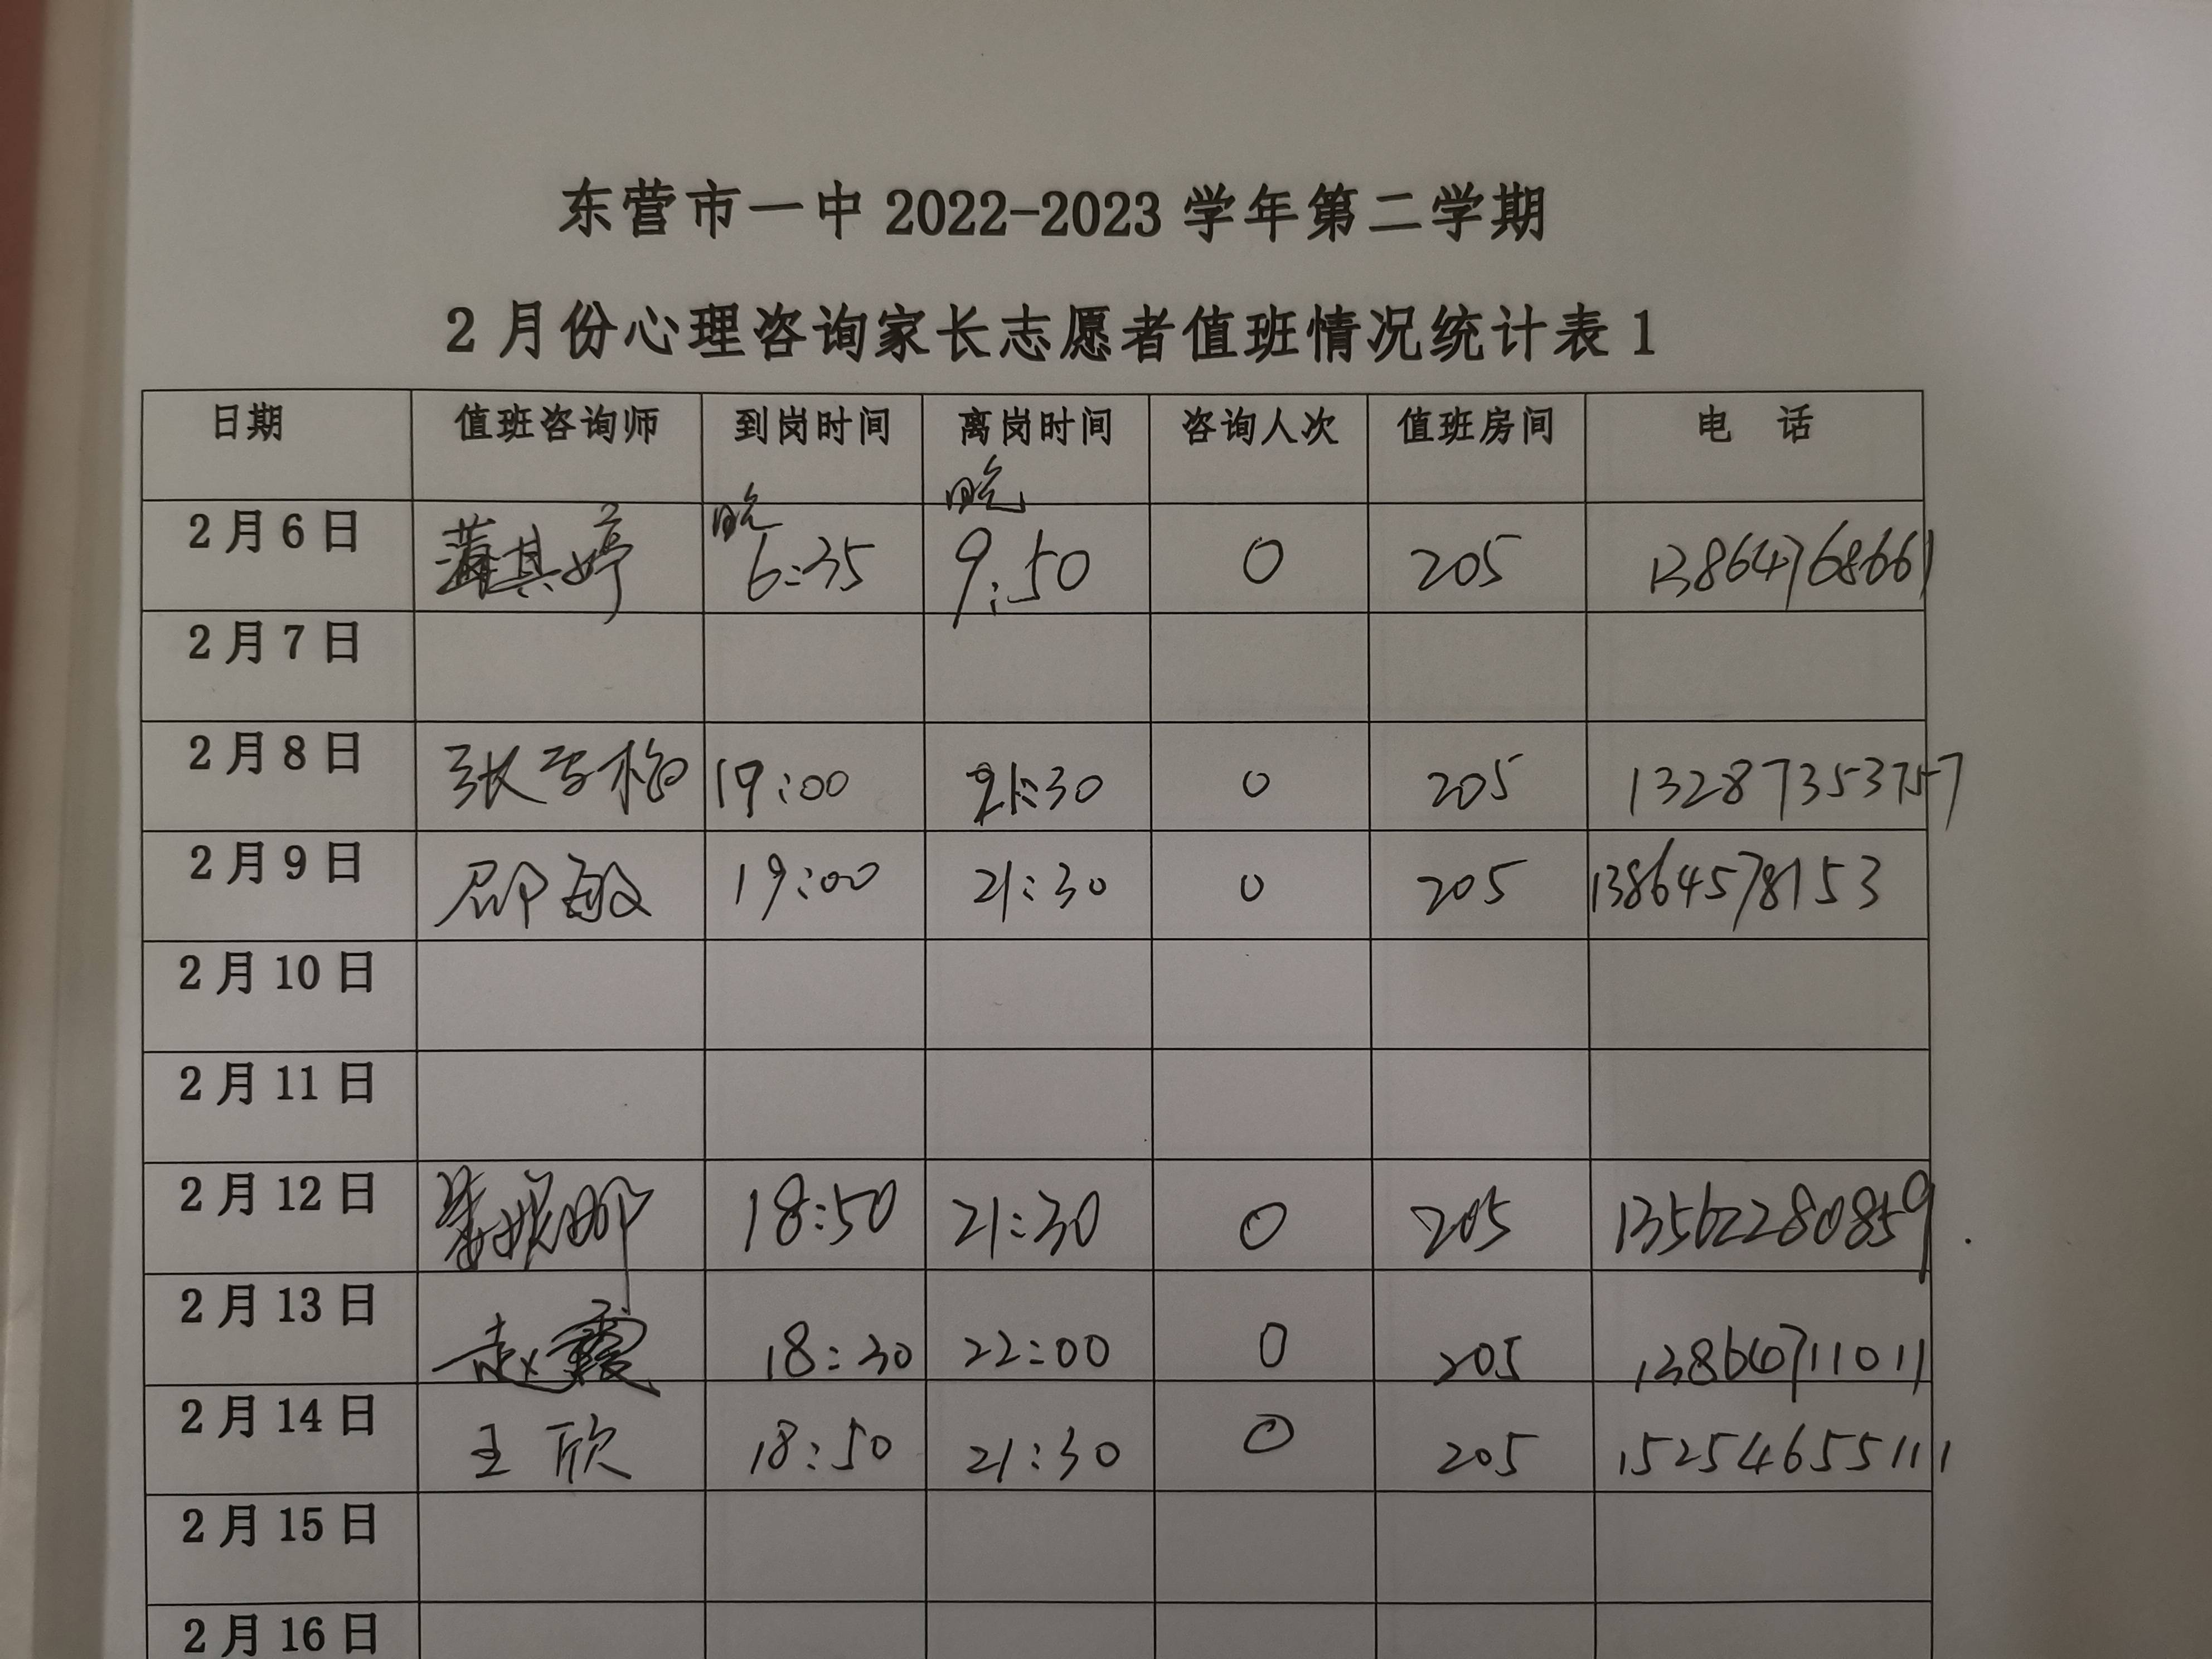 东营市一中 2022-2023 学年第二学期
2 月份心理咨询家长志愿者值班情况统计表 1
日期 值班咨询师 到岗时间 离岗时间 咨询人次 值班房间 电 话
2 月 6 日 其婷 晚 6:35 晚 9:50 0 205 13864768661
2 月 7 日
2 月 8 日 张 梅 19:00 21:30 0 205 13287353757
2 月 9 日 邵敏 19:00 21:30 0 205 13864578153
2 月 10 日
2 月 11 日
2 月 12 日 娜 18:50 21:30 0 205 13562280859
2 月 13 日 赵霞 18:30 22:00 0 205 13864711011
2 月 14 日 王欣 18:50 21:30 0 205 15254655111
2 月 15 日
2 月 16 日